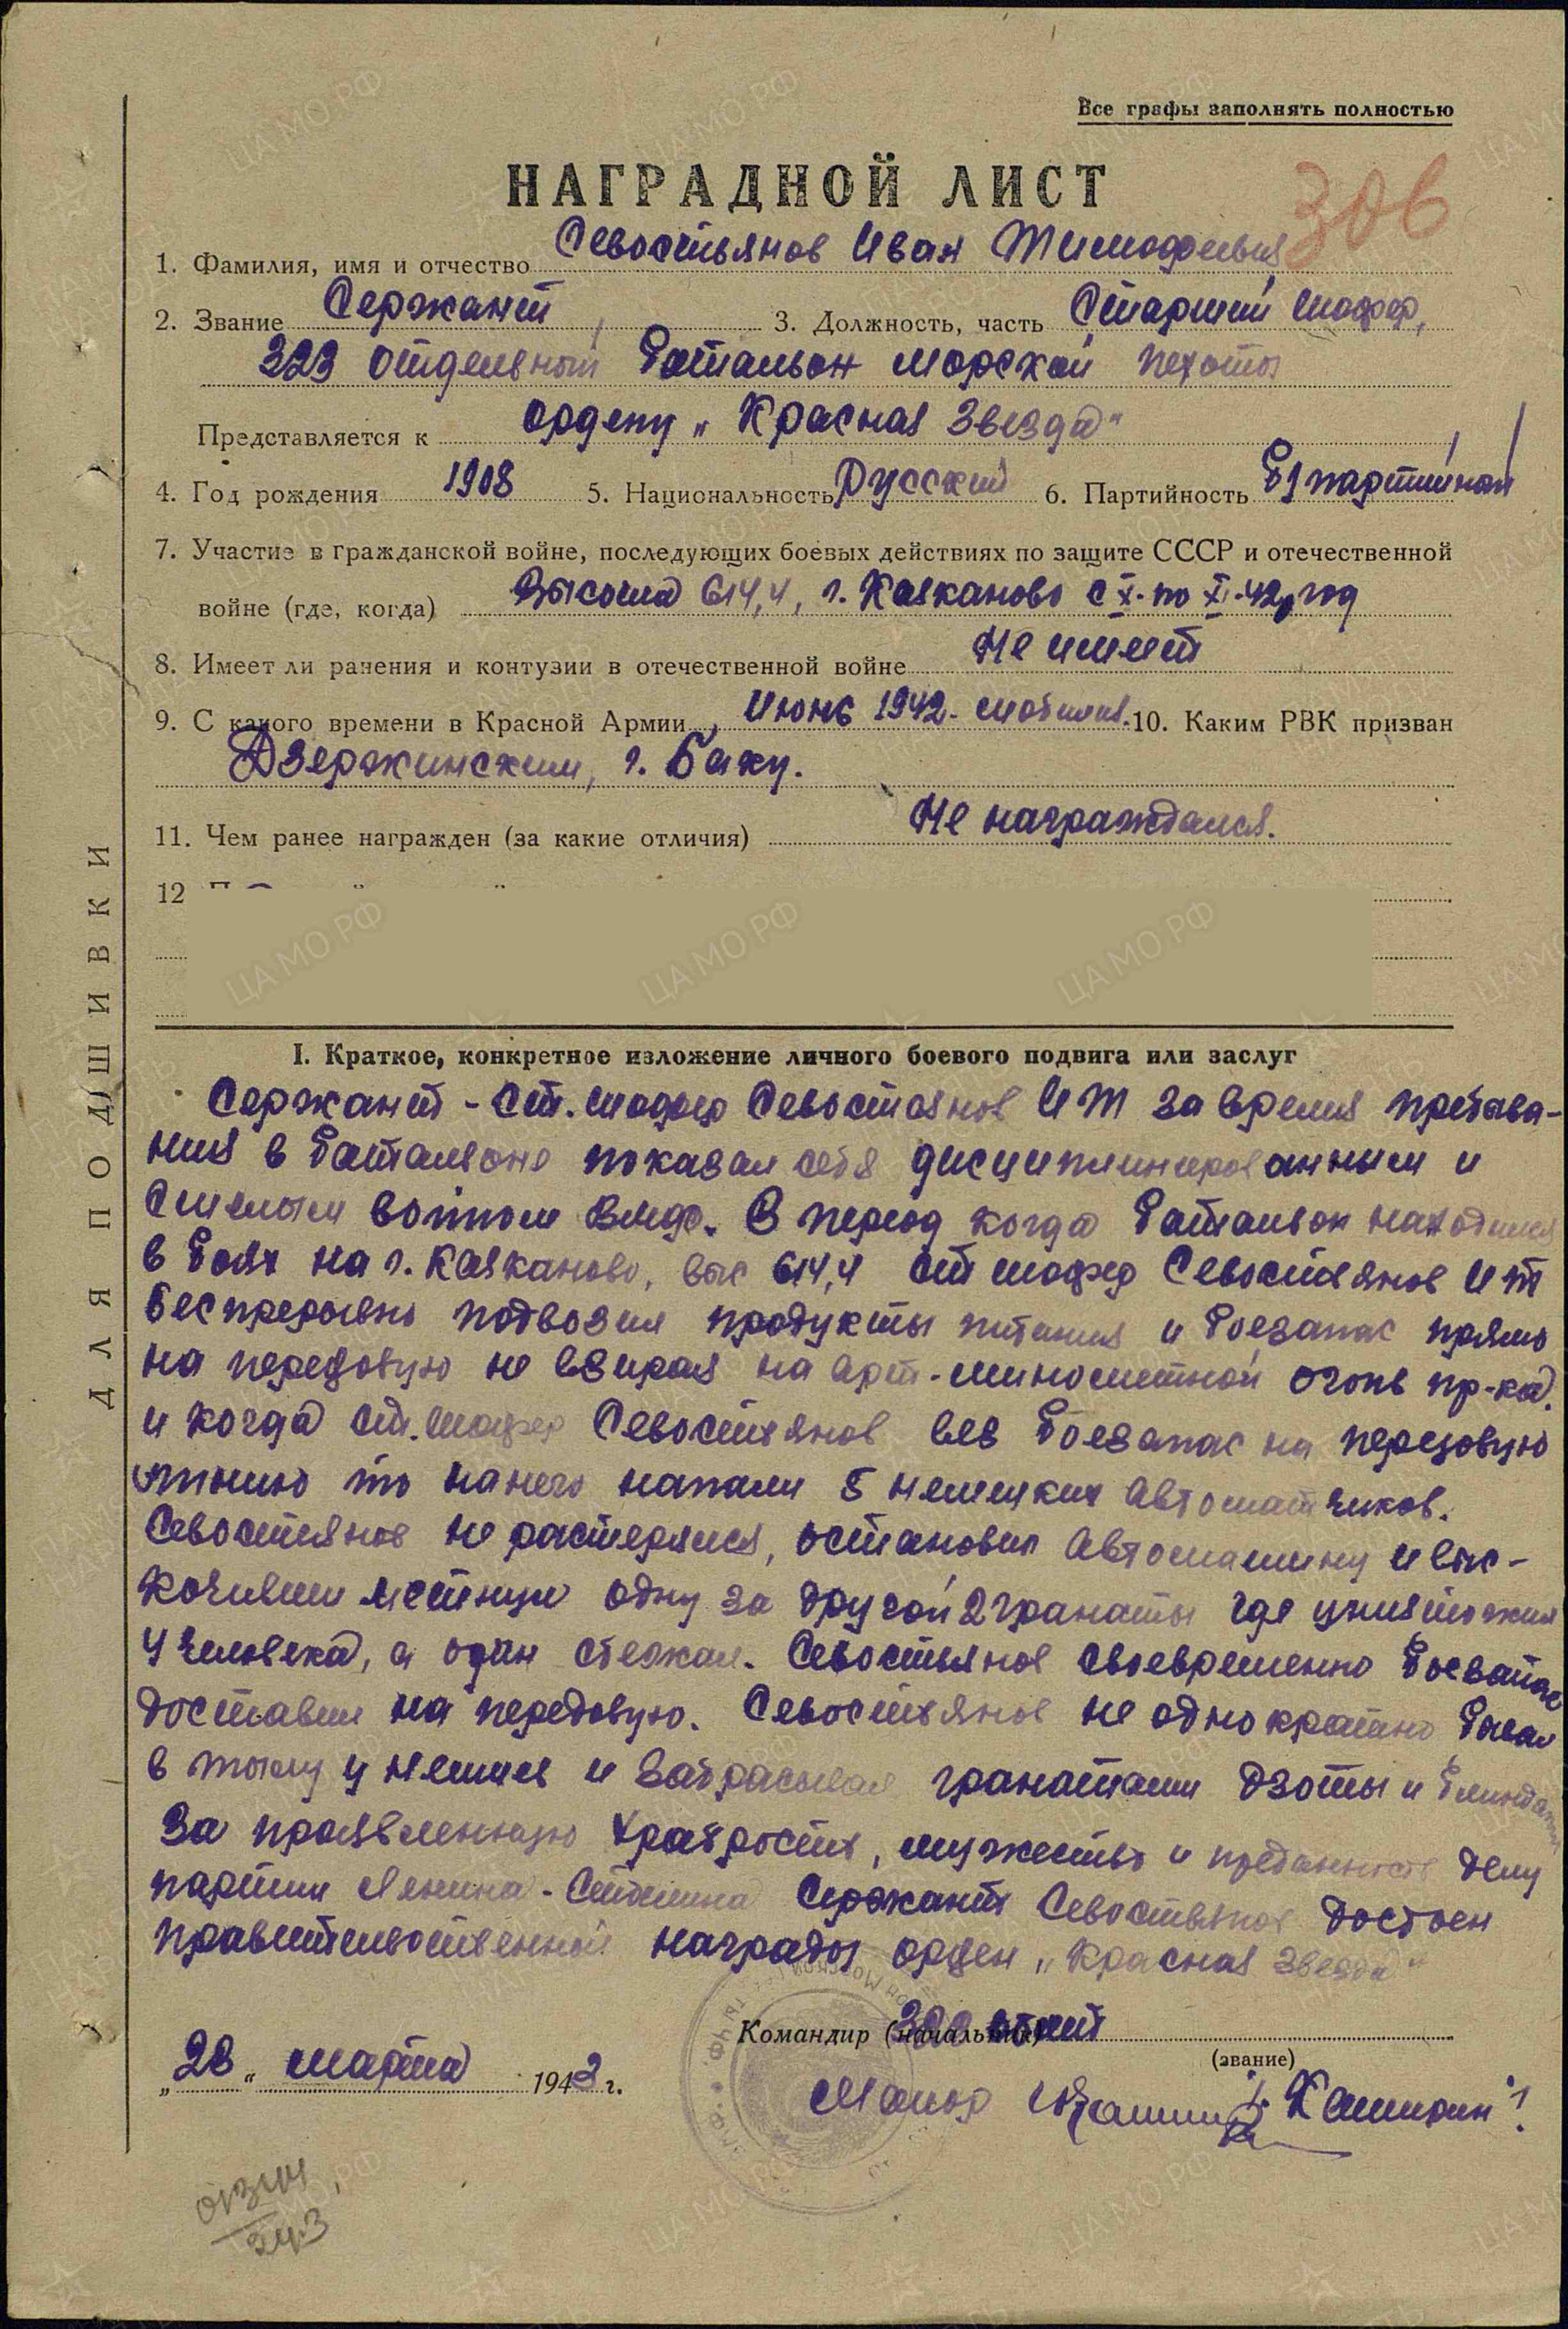 Все графы заполнять полностью
НАГРАДНОЙ ЛИСТ
306
1. Фамилия, имя и отчество Севостьянов Иван Тимофеевич
2. Звание Сержант, 3. Должность, часть Старший шофер,
323 отдельный батальон морской пехоты
Представляется к ордену „Красная Звезда"
4. Год рождения 1908 5. Национальность Русский 6. Партийность б/партийный
7. Участие в гражданской войне, последующих боевых действиях по защите СССР и отечественной
войне (где, когда) Высота 614,4, г. Каякановo с X по XI-42 год
8. Имеет ли ранения и контузии в отечественной войне Не имеет
9. С какого времени в Красной Армии Июнь 1942. мобилиз. 10. Каким РВК призван
Дзержинским, г. Баку.
11. Чем ранее награжден (за какие отличия) Не награждался.
12
I. Краткое, конкретное изложение личного боевого подвига или заслуг
Сержант - ст. шофер Севостоянов И Т за время пребыва-
ния в батальоне показал себя дисциплинированным и
смелым воином ВМФ. В период когда батальон находился
в боях на г. Каяканово, выс 614,4 ст шофер Севостьянов И Т
беспрерывно подвозил продукты питания и боезапас прямо
на передовую не взирая на арт-минометной огонь пр-ка.
и когда ст. шофер Севостьянов вез боезапас на передовую
линию то на него напали 5 немецких автоматчиков.
Севостьянов не растерялся, остановил автомашину и выс-
кочивши метнул одну за другой 2 гранаты где уничтожил
4 человека, а один сбежал. Севостьянов своевременно боезапас
доставил на передовую. Севостьянов не однократно бывал
в тылу у немцев и забрасывал гранатами дзоты и блиндажи
За проявленную храбрость, мужество и преданность делу
партии Ленина - Сталина Сержант Севостьянов достоен
правительственной награды орден „Красная Звезда"
Командир (начальник)
(звание)
„28" марта 1943 г.
Майор Каширин
243
ДЛЯ ПОДШИВКИ
ЦА МО РФ